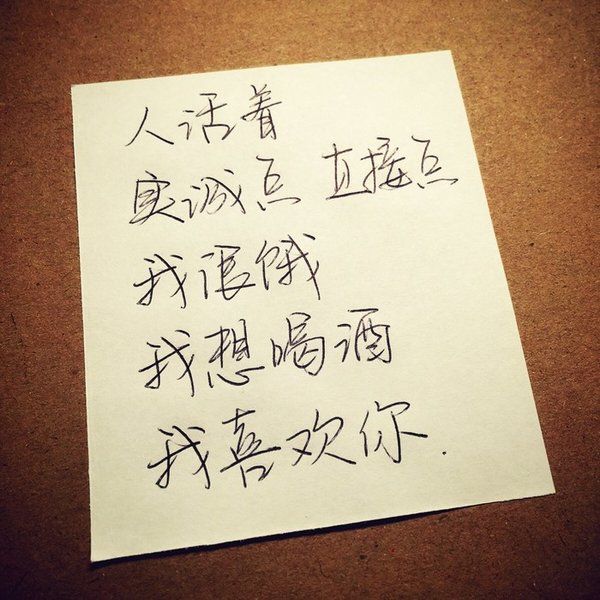 人活着
实诚点 直接点
我很饿
我想喝酒
我喜欢你.